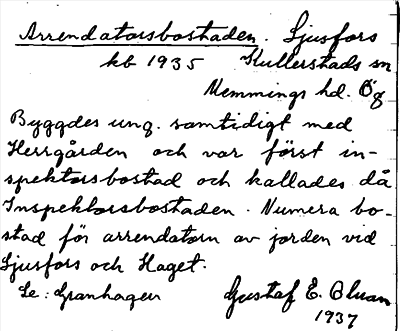 Arrendatorsbostaden. Ljusfors
kb 1935 Kullerstads sn
Memmings hd. Ög
Byggdes ung. samtidigt med
Herrgården och var först in-
spektorsbostad och kallades då
Inspektorsbostaden. Numera bo-
stad för arrendatorn av jorden vid
Ljusfors och Haget.
Se: Granhagen Gustaf E. Olman
1937